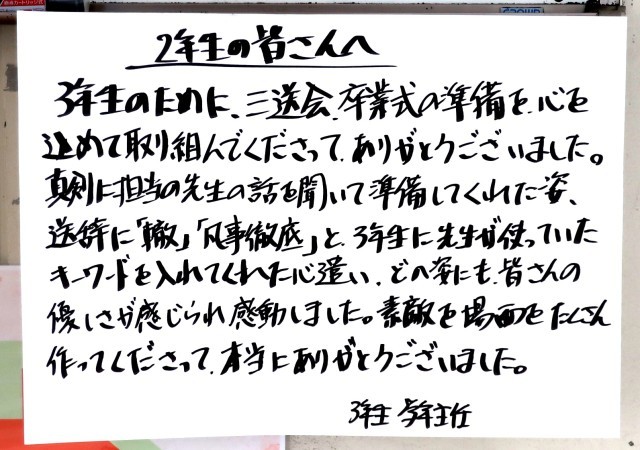 2年生の皆さんへ
3年生のために、三送会、卒業式の準備を、心を
込めて取り組んでくださって、ありがとうございました。
真剣に担当の先生の話を聞いて準備してくれた姿、
送辞に「轍」「凡事徹底」と、3年生に先生が使っていた
キーワードを入れてくれた心遣い、どの姿にも、皆さんの
優しさが感じられ感動しました。素敵な場面をたくさん
作ってくださって、本当にありがとうございました。
3年生 学年主任